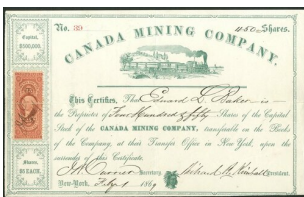 No. 39
450 Shares.
Capital,
$500,000.
CANADA MINING COMPANY.
This Certifies, That Edward L. Baker is
the Proprietor of Four Hundred & fifty Shares of the Capital
Stock of the CANADA MINING COMPANY, transferable on the Books
of the Company, at their Transfer Office in New York, upon the
surrender of this Certificate.
Shares,
$5 EACH.
Secretary
President.
New-York, 186